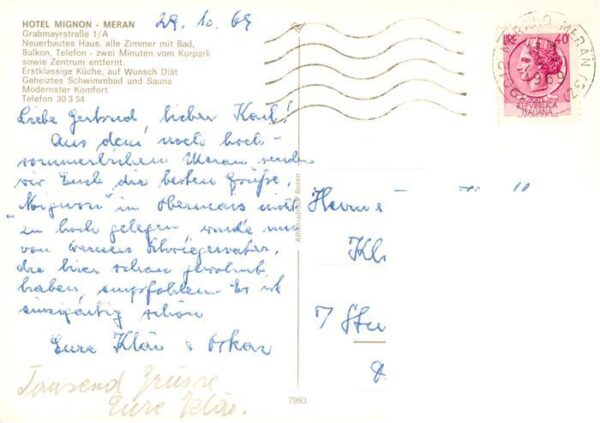 HOTEL MIGNON - MERAN
Grabmayrstraße 1/A
Neuerbautes Haus, alle Zimmer mit Bad,
Balkon, Telefon - zwei Minuten vom Kurpark
sowie Zentrum entfernt.
Erstklassige Küche, auf Wunsch Diät
Geheiztes Schwimmbad und Sauna
Modernster Komfort
Telefon 30 3 54
29. 10. 69
Liebe Gertrud, lieber Karl!
Aus dem noch hoch-
sommerlichen Meran senden
wir Euch die besten Grüße,
"Mignon" in Obermais nicht
zu hoch gelegen, wurde uns
von Werners Schwiegervater,
die hier schon gewohnt
haben, empfohlen. Es ist
einzigartig schön
Eure Klär & Oskar
Tausend Grüsse
Eure Klär.
LIRE 40
REPVBBLICA
ITALIANA
MERANO MERAN
1969
7
7993